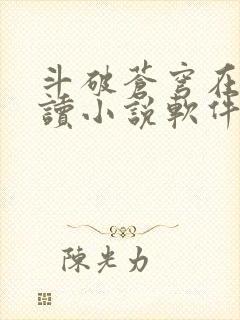 斗破蒼穹在
讀小說軟件
陳光力